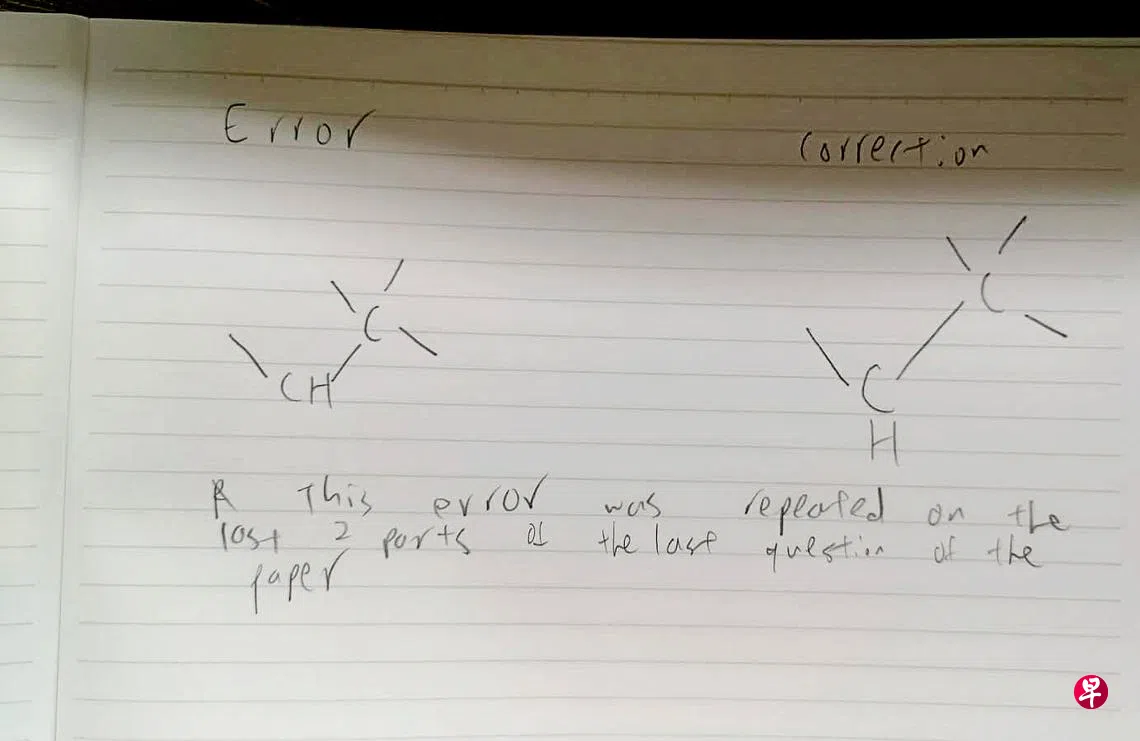 Error
Correction
C
CH
C
C
H
This error was repeated on the
last 2 parts of the last question of the
paper
早